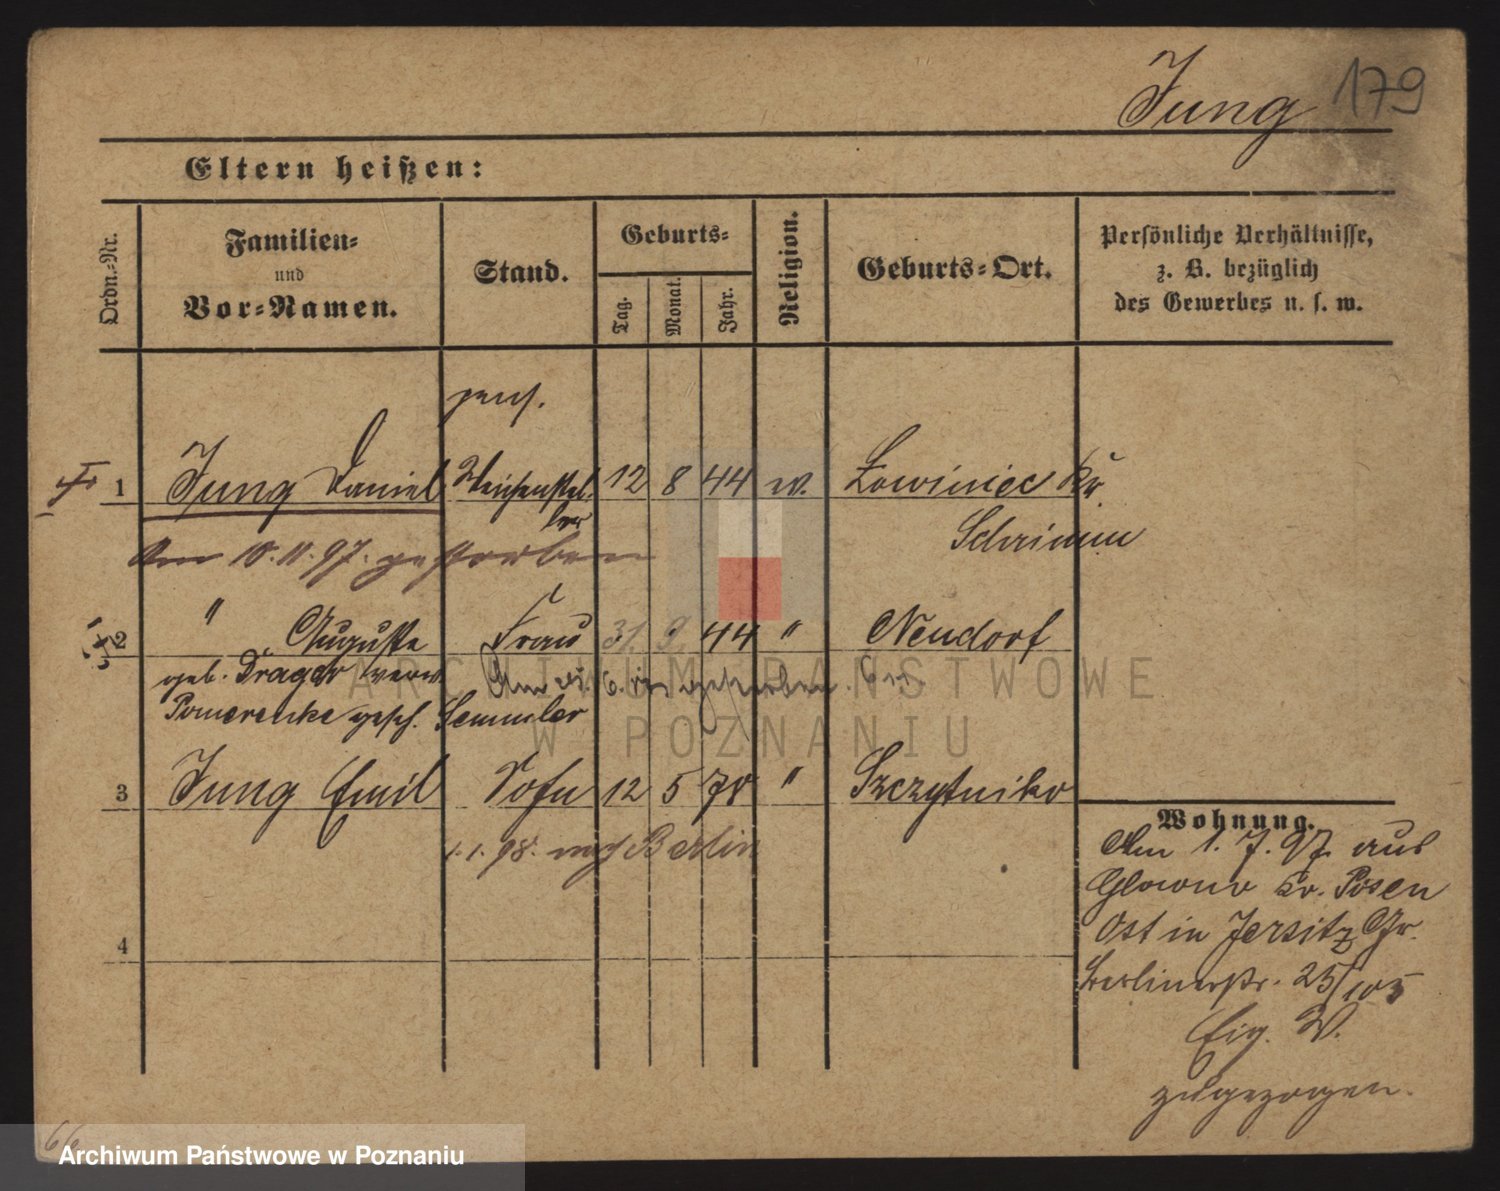 Jung 179
Eltern heißen:
Ordn.-Nr.
Familien-
und
Vor-Namen.
Stand.
Geburts-
Tag.
Monat.
Jahr.
Religion.
Geburts-Ort.
Persönliche Verhältnisse,
z. B. bezüglich
des Gewerbes u. s. w.
pens.
1 Jung Daniel Weichenstel- 12 8 44 ev. Łowiniec Kr.
ler Schrimm
Am 10. 11. 97. gestorben
2 " Auguste Frau 31. 9. 44 " Neudorf
geb. Drager verw. Am 6. gestorben.
Pomerenke gesch. Semmler
3 Jung Emil Sohn 12 5 78 " Szczytniko
1. 1. 98. nach Berlin
4
Wohnung.
Am 1. 7. 97 aus
Glowno Kr. Posen
Ost in Jersitz Gr.
Berlinerstr. 25/105
Eig. W.
zugezogen.
66
ARCHIWUM PAŃSTWOWE
W POZNANIU
Archiwum Państwowe w Poznaniu